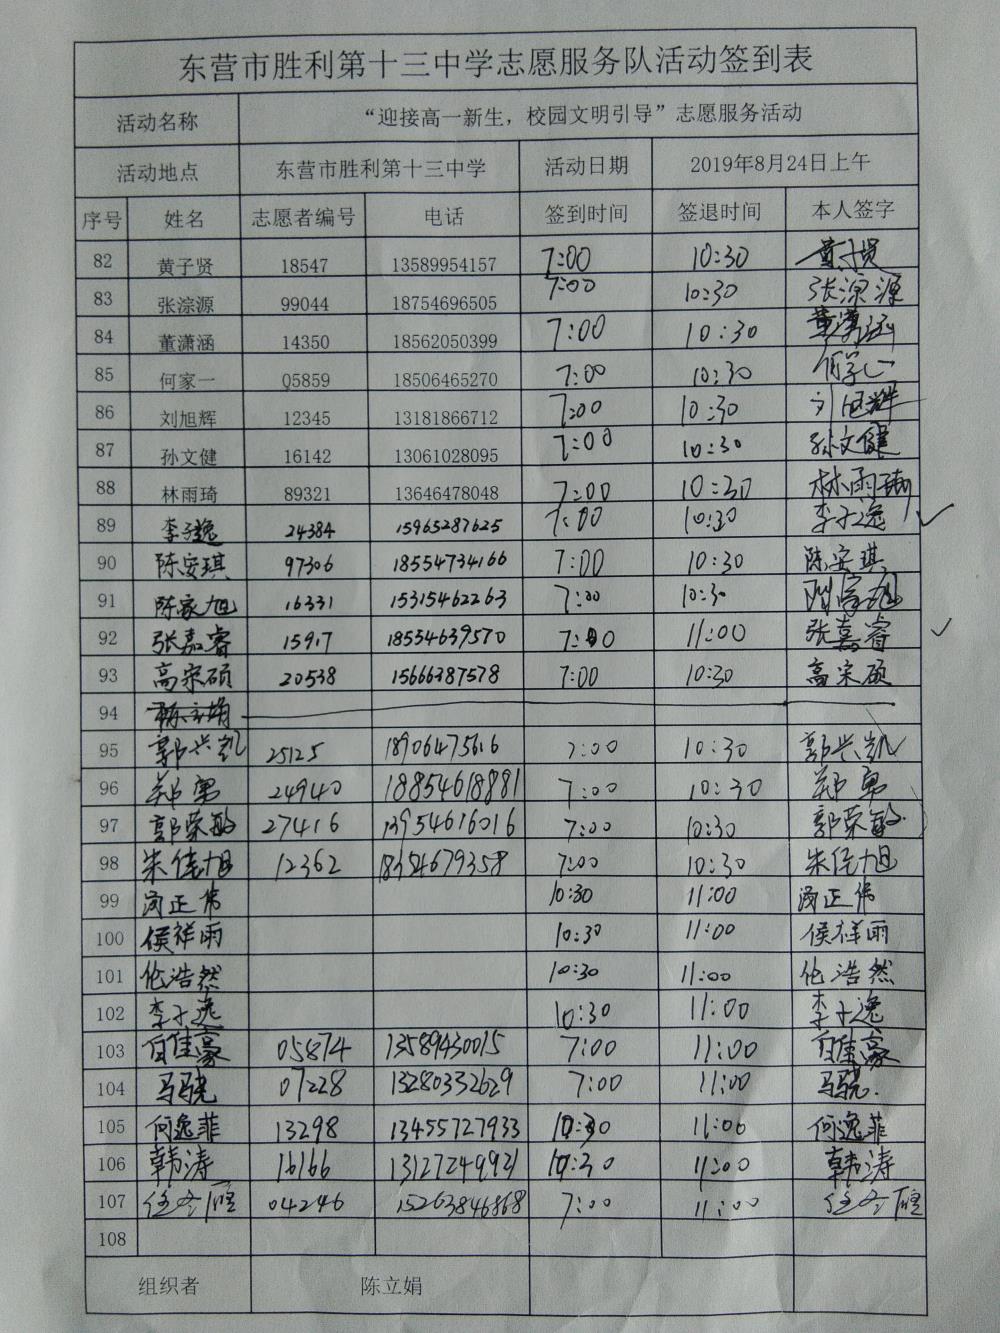 东营市胜利第十三中学志愿服务队活动签到表
活动名称 “迎接高一新生，校园文明引导”志愿服务活动
活动地点 东营市胜利第十三中学 活动日期 2019年8月24日上午
序号 姓名 志愿者编号 电话 签到时间 签退时间 本人签字
82 黄子贤 18547 13589954157 7:00 10:30 黄子贤
83 张淙源 99044 18754696505 7:00 10:30 张淙源
84 董潇涵 14350 18562050399 7:00 10:30 董潇涵
85 何家一 Q5859 18506465270 7:00 10:30 何家一
86 刘旭辉 12345 13181866712 7:00 10:30 刘旭辉
87 孙文健 16142 13061028095 7:00 10:30 孙文健
88 林雨琦 89321 13646478048 7:00 10:30 林雨琦
89 李子逸 24384 15965287625 7:00 10:30 李子逸 ✓
90 陈安琪 97306 18554734166 7:00 10:30 陈安琪
91 陈家旭 16331 15315462263 7:00 10:30 陈家旭
92 张嘉睿 15917 18554639570 7:00 11:00 张嘉睿 ✓
93 高宗硕 20538 15666387578 7:00 10:30 高宗硕
94
95 郭兴凯 25125 18906475616 7:00 10:30 郭兴凯
96 郑勇 24940 18854618881 7:00 10:30 郑勇
97 郭荣敏 27416 13954616016 7:00 10:30 郭荣敏
98 朱佳旭 12362 18354679358 7:00 10:30 朱佳旭
99 正伟 10:30 11:00 正伟
100 侯祥雨 10:30 11:00 侯祥雨
101 伦浩然 10:30 11:00 伦浩然
102 李子逸 10:30 11:00 李子逸
103 白佳豪 05874 13589430015 7:00 11:00 白佳豪
104 马骁 07228 13280332629 7:00 11:00 马骁.
105 何逸菲 13298 13455727933 10:30 11:00 何逸菲
106 韩涛 16166 13127249921 10:30 11:00 韩涛
107 04246 15263846868 7:00 11:00
108
组织者 陈立娟